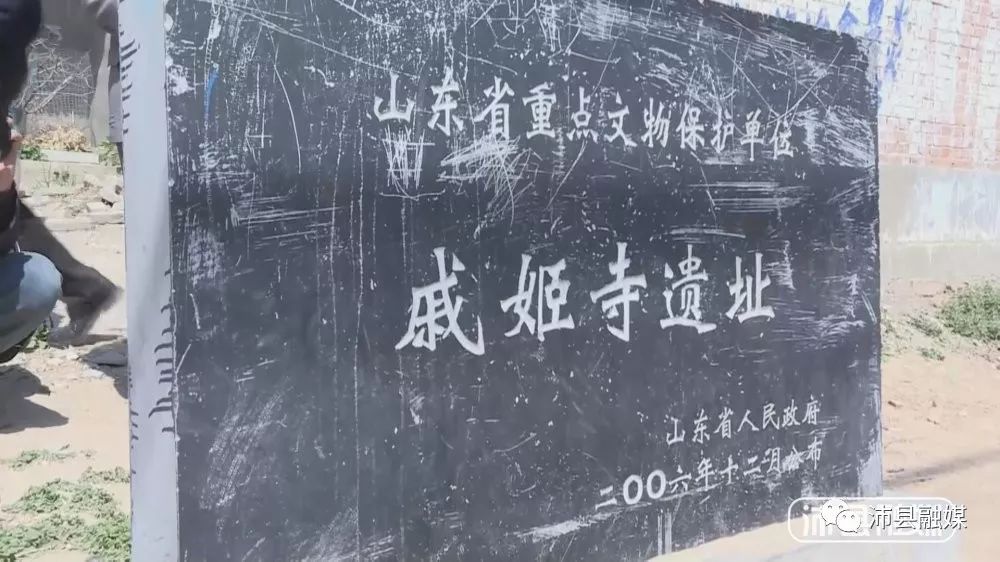 山东省重点文物保护单位
戚姬寺遗址
山东省人民政府
二〇〇六年十二月公布
沛县融媒